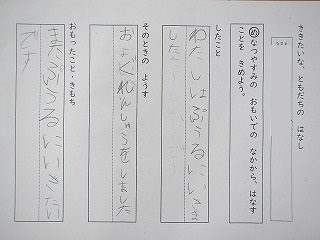 ききたいな、ともだちの はなし
なまえ
めなつやすみの おもいでの なかから、はなす
ことを きめよう。
したこと
わたしはぷうるにいきま
した
そのときの ようす
およぐれんしゅうをしました
おもったこと・きもち
またぷうるにいきたい
です